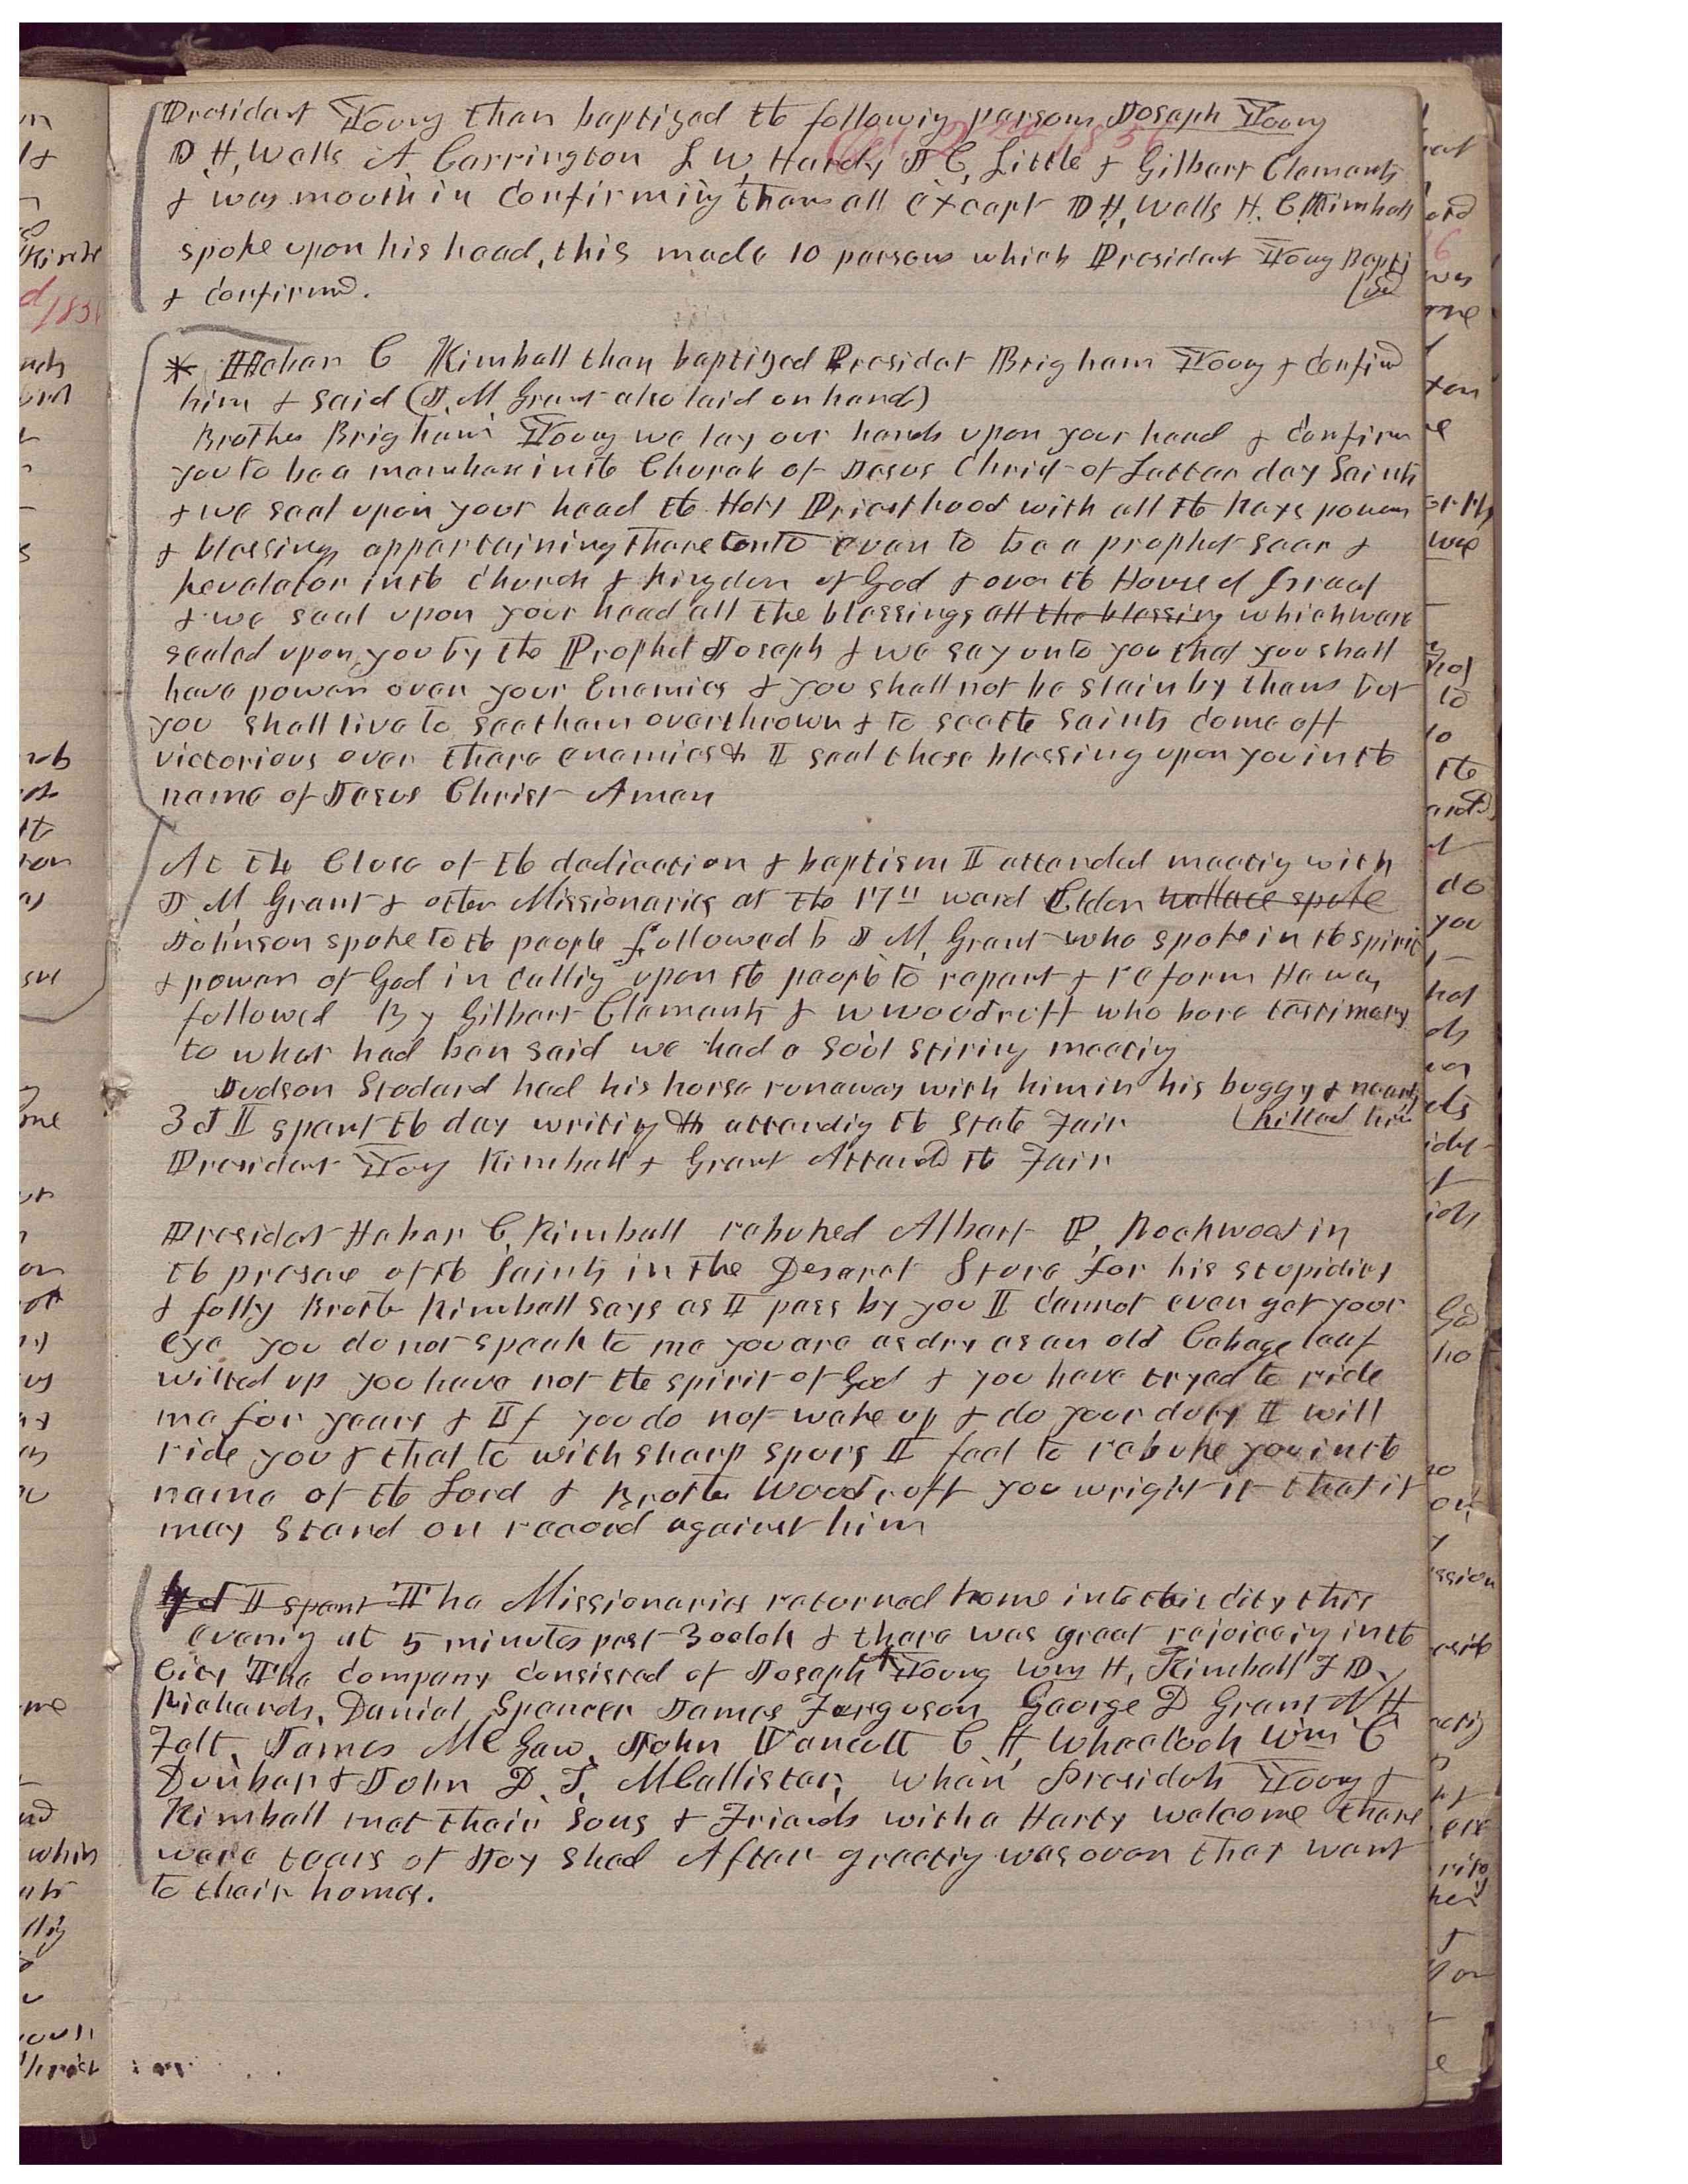 President Young then baptized the following persons Joseph Young
D, H, Wells A Carrington L W, Hardy J C, Little & Gilbert Clements
& was mouth in Confirming them all except D H, Wells H. C. Kimball
spoke upon his head, this made 10 persons which President Young Bapti
zed
& confirmd.
* Heber C Kimball then baptized President Brigham Young & Confirmd
him & said (J. M. Grant also laid on hand)
Brother Brigham Young we lay our hands upon your head & Confirm
you to be a member in the Church of Jesus Christ of Latter day Saints
& we seal upon your head the Holy Priesthood with all the keys powers
& blessings appertaining thereunto even to be a prophet seer &
Revelator in the Church & kingdom of God & over the House of Israel
& we seal upon your head all the blessings all the blessing which were
sealed upon you by the Prophet Joseph & we say unto you that you shall
have power over your Enemies & you shall not be slain by them but
you shall live to see them overthrown & to see the Saints come off
victorious over there enemies & I seal these blessing upon you in the
name of Jesus Christ Amen
At the Close of the dedication & baptism I attended meeting with
J M, Grant & other Missionaries at the 17" ward Elder wallace spoke
Johnson spoke to the people followed by J M, Grant who spoke in the spirit
& power of God in calling upon the people to repent & reform He was
followed By Gilbert Clements & W Woodruff who bore testimony
to what had ben said we had a good stiring meeting
Judson Stodard had his horse runaway with him in his buggy & nearly
killed him
3d I spent the day writing & attending the State Fair
President Young Kimball & Grant Attend the Fair
President Heber C, Kimball rebuked Albert P, Rockwood in
the presence of the Saints in the Deseret Store for his stupidity
& folly Brother Kimball says as I pass by you I cannot even get your
eye you do not speak to me you are as dry as an old Cabage leaf
wilted up you have not the spirit of God & you have tryed to ride
me for years & If you do not wake up & do your duty I will
ride you & that to with sharp spurs I feel to rebuke you in the
name of the Lord & Brother Woodruff you wright it that it
may stand on record against him
4d I spent The Missionaries returned home into this city this
evening at 5 minutes past 3 oclok & there was great rejoiceing in the
City The company consisted of Joseph A Young Wm H, Kimball F D,
Richards, Daniel Spencer James Ferguson George D Grant N H
Felt, James McGaw, John Vancott C H, Wheelock Wm C
Dunbar & John D. T. McCallister, when Presidets Young &
Kimball met their Sons & Friends with a Harty welcome there
were tears of Joy shed After greeting was over that went
to their homes.